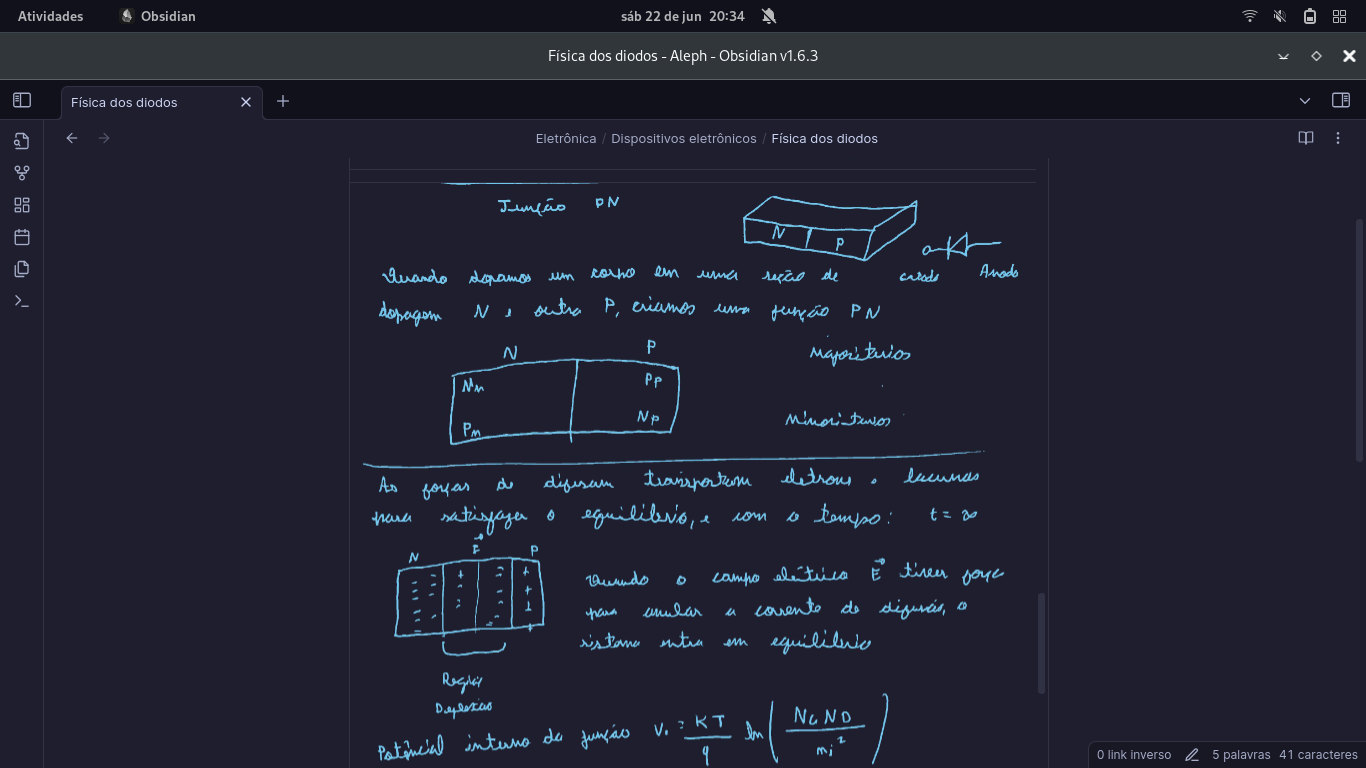 Atividades
Obsidian
sáb 22 de jun 20:34
Física dos diodos - Aleph - Obsidian v1.6.3
Física dos diodos
Eletrônica / Dispositivos eletrônicos / Física dos diodos
Junção PN
N P
Quando dopamos um corpo em uma seção de
catodo Anodo
dopagem N e outra P, criamos uma junção PN
N P
Majoritarios
Nn Pp
Pn Np
Minoritarios
As forças de difusam transportam eletrons e lacunas
para satisfazer o equilíbrio, e com o tempo: t = ∞
N E P
Quando o campo elétrico E tiver força
para anular a corrente de difusão, o
sistema entra em equilíbrio
Região
Deplexão
Potêncial interno da junção V₀ = KT/q ln(NaND/ni²)
0 link inverso 5 palavras 41 caracteres